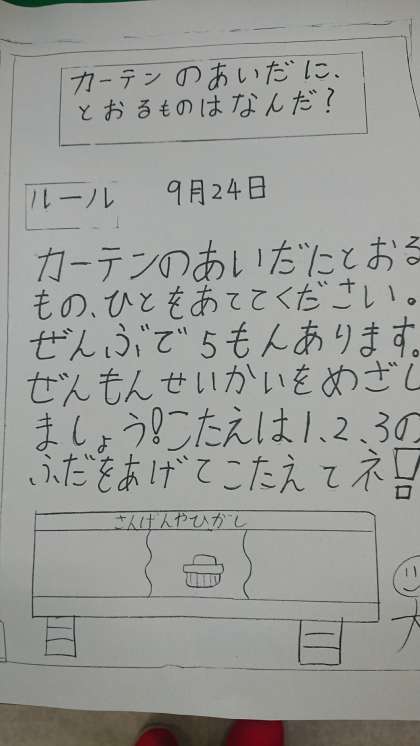 カーテンのあいだに、
とおるものはなんだ?
ルール 9月24日
カーテンのあいだにとおる
もの、ひとをあててください。
ぜんぶで5もんあります。
ぜんもんせいかいをめざし
ましょう!こたえは1、2、3の
ふだをあげてこたえてネ!
さんげんやひがし